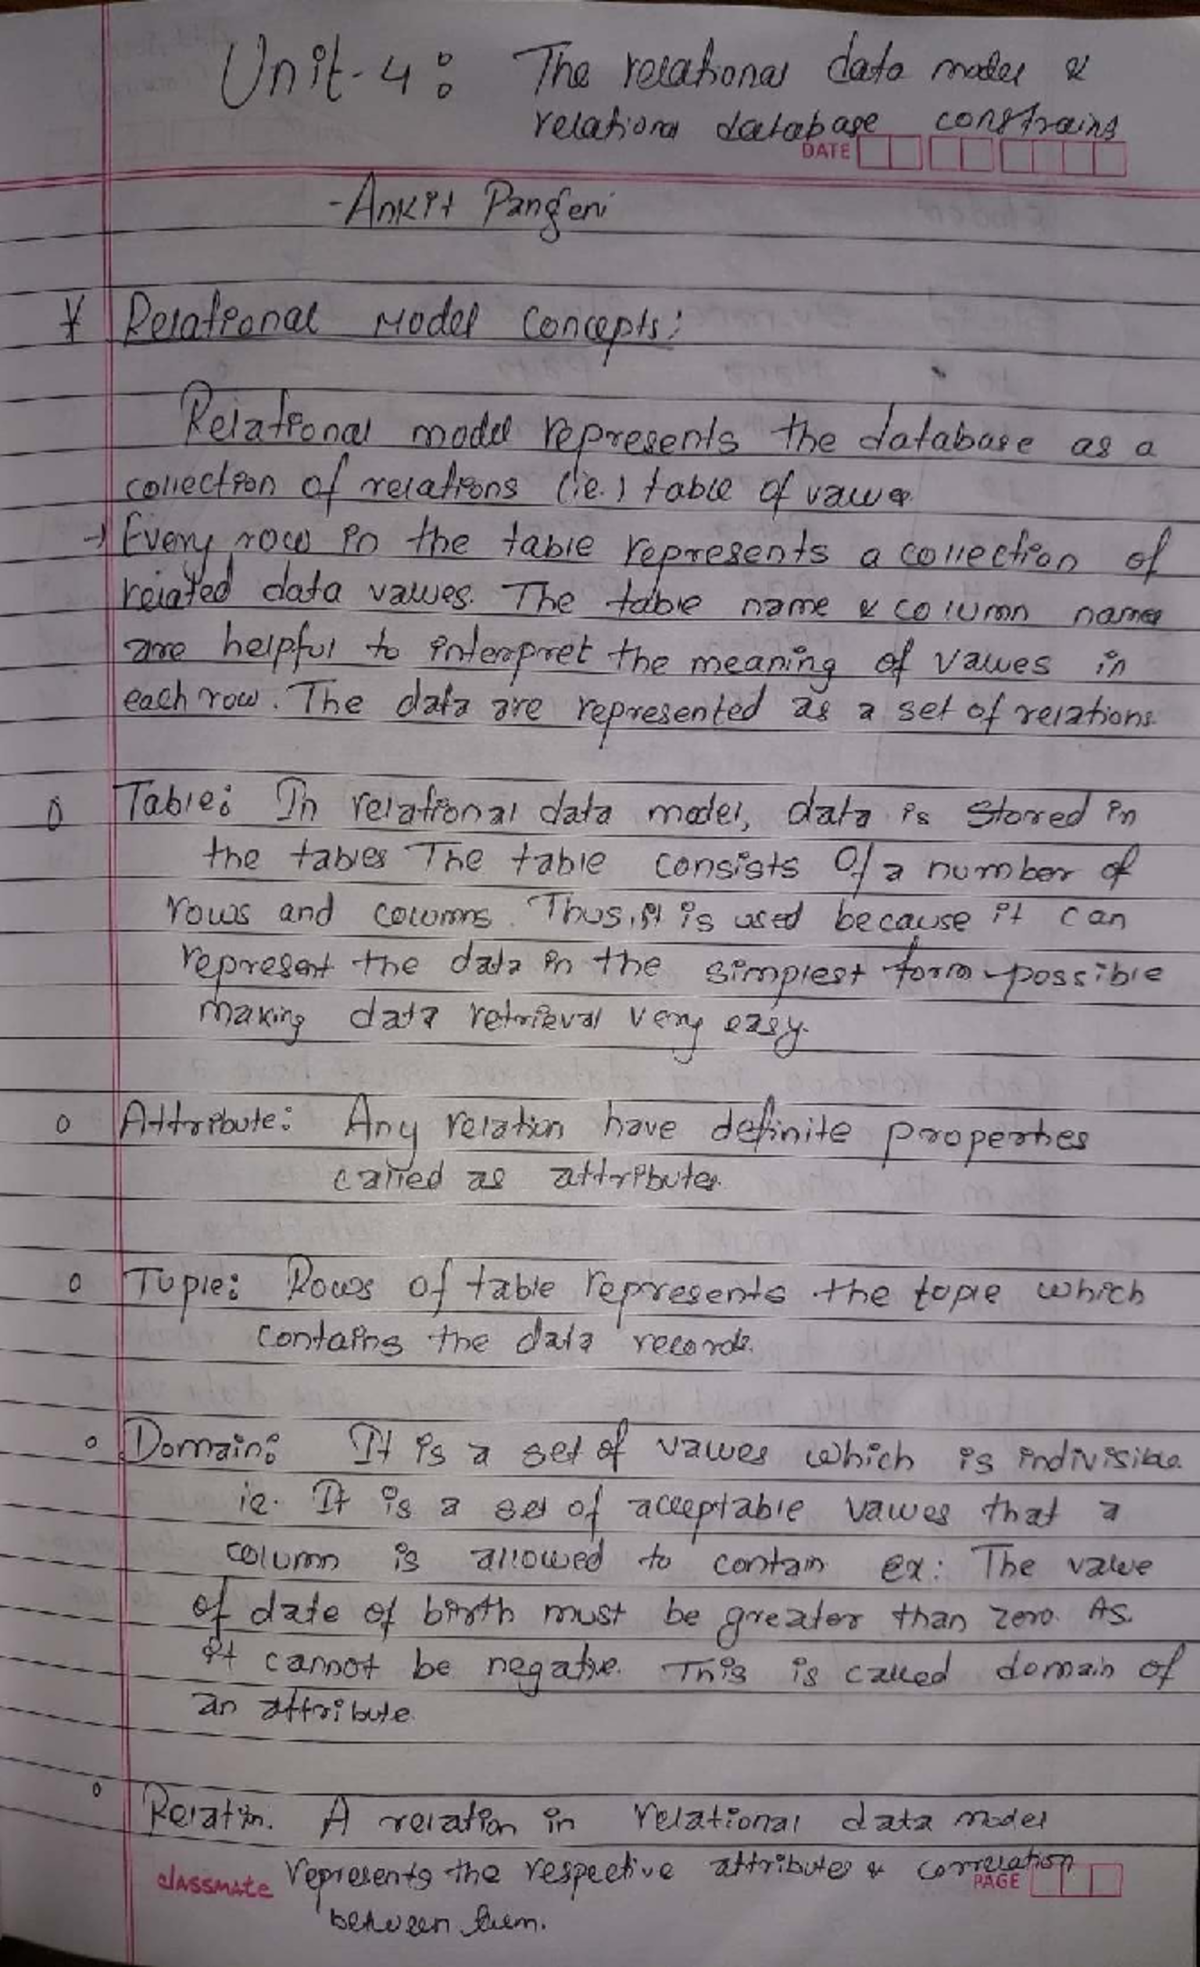 Unit-4: The relational data model &
relational database constrains
DATE
-Ankit Pangeni
Relational Model Concepts:
Relational model represents the database as a
collection of relations (ie.) table of values
→ Every row in the table represents a collection of
related data values. The table name & column names
are helpful to interpret the meaning of values in
each row. The data are represented as a set of relations.
Table: In relational data model, data is stored in
the tables The table consists of a number of
rows and columns. Thus, it is used because it can
represent the data in the simplest form possible
making data retrieval very easy.
Attribute: Any relation have definite properties
called as attributes.
Tuple: Rows of table represents the tople which
contains the data records.
Domain: It is a set of values which is indivisible.
ie. It is a set of acceptable values that a
column is allowed to contain ex: The value
of date of birth must be greater than zero. As
it cannot be negative. This is called domain of
an attribute
Relation. A relation in relational data model
represents the respective attributes & correlation
between them.
classmate
PAGE